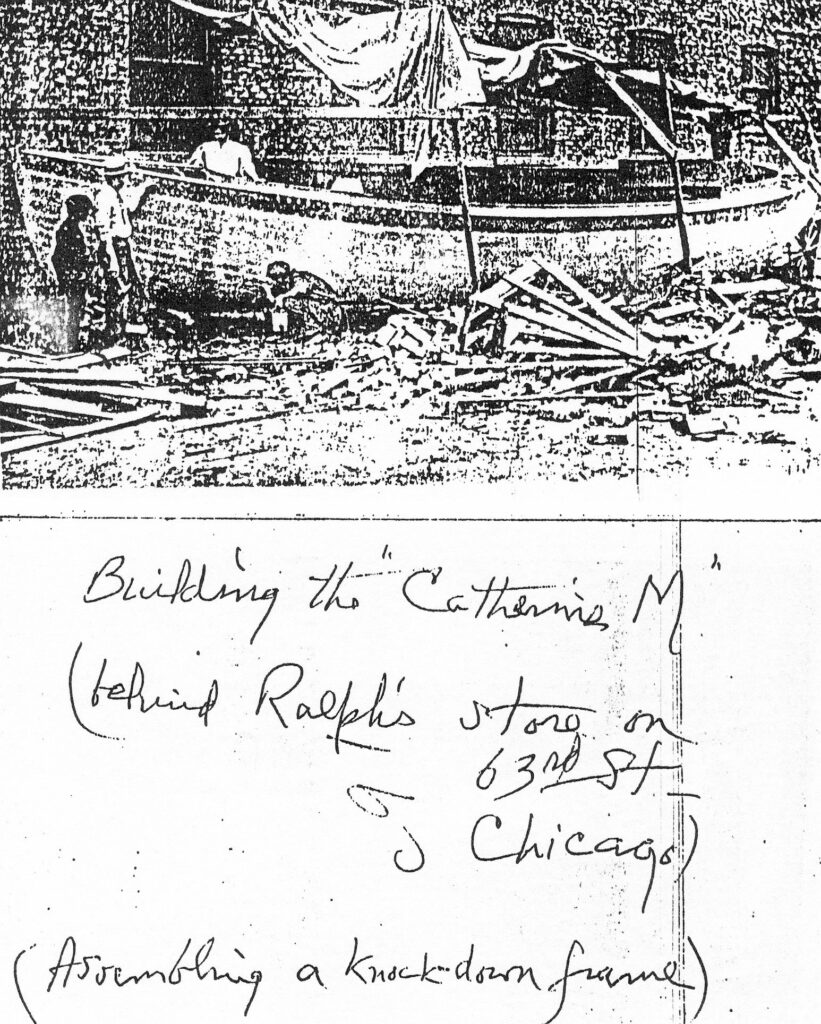 Building the "Catherine M"
(behind Ralph's store on
63rd St
Chicago)
(Assembling a knock-down frame)